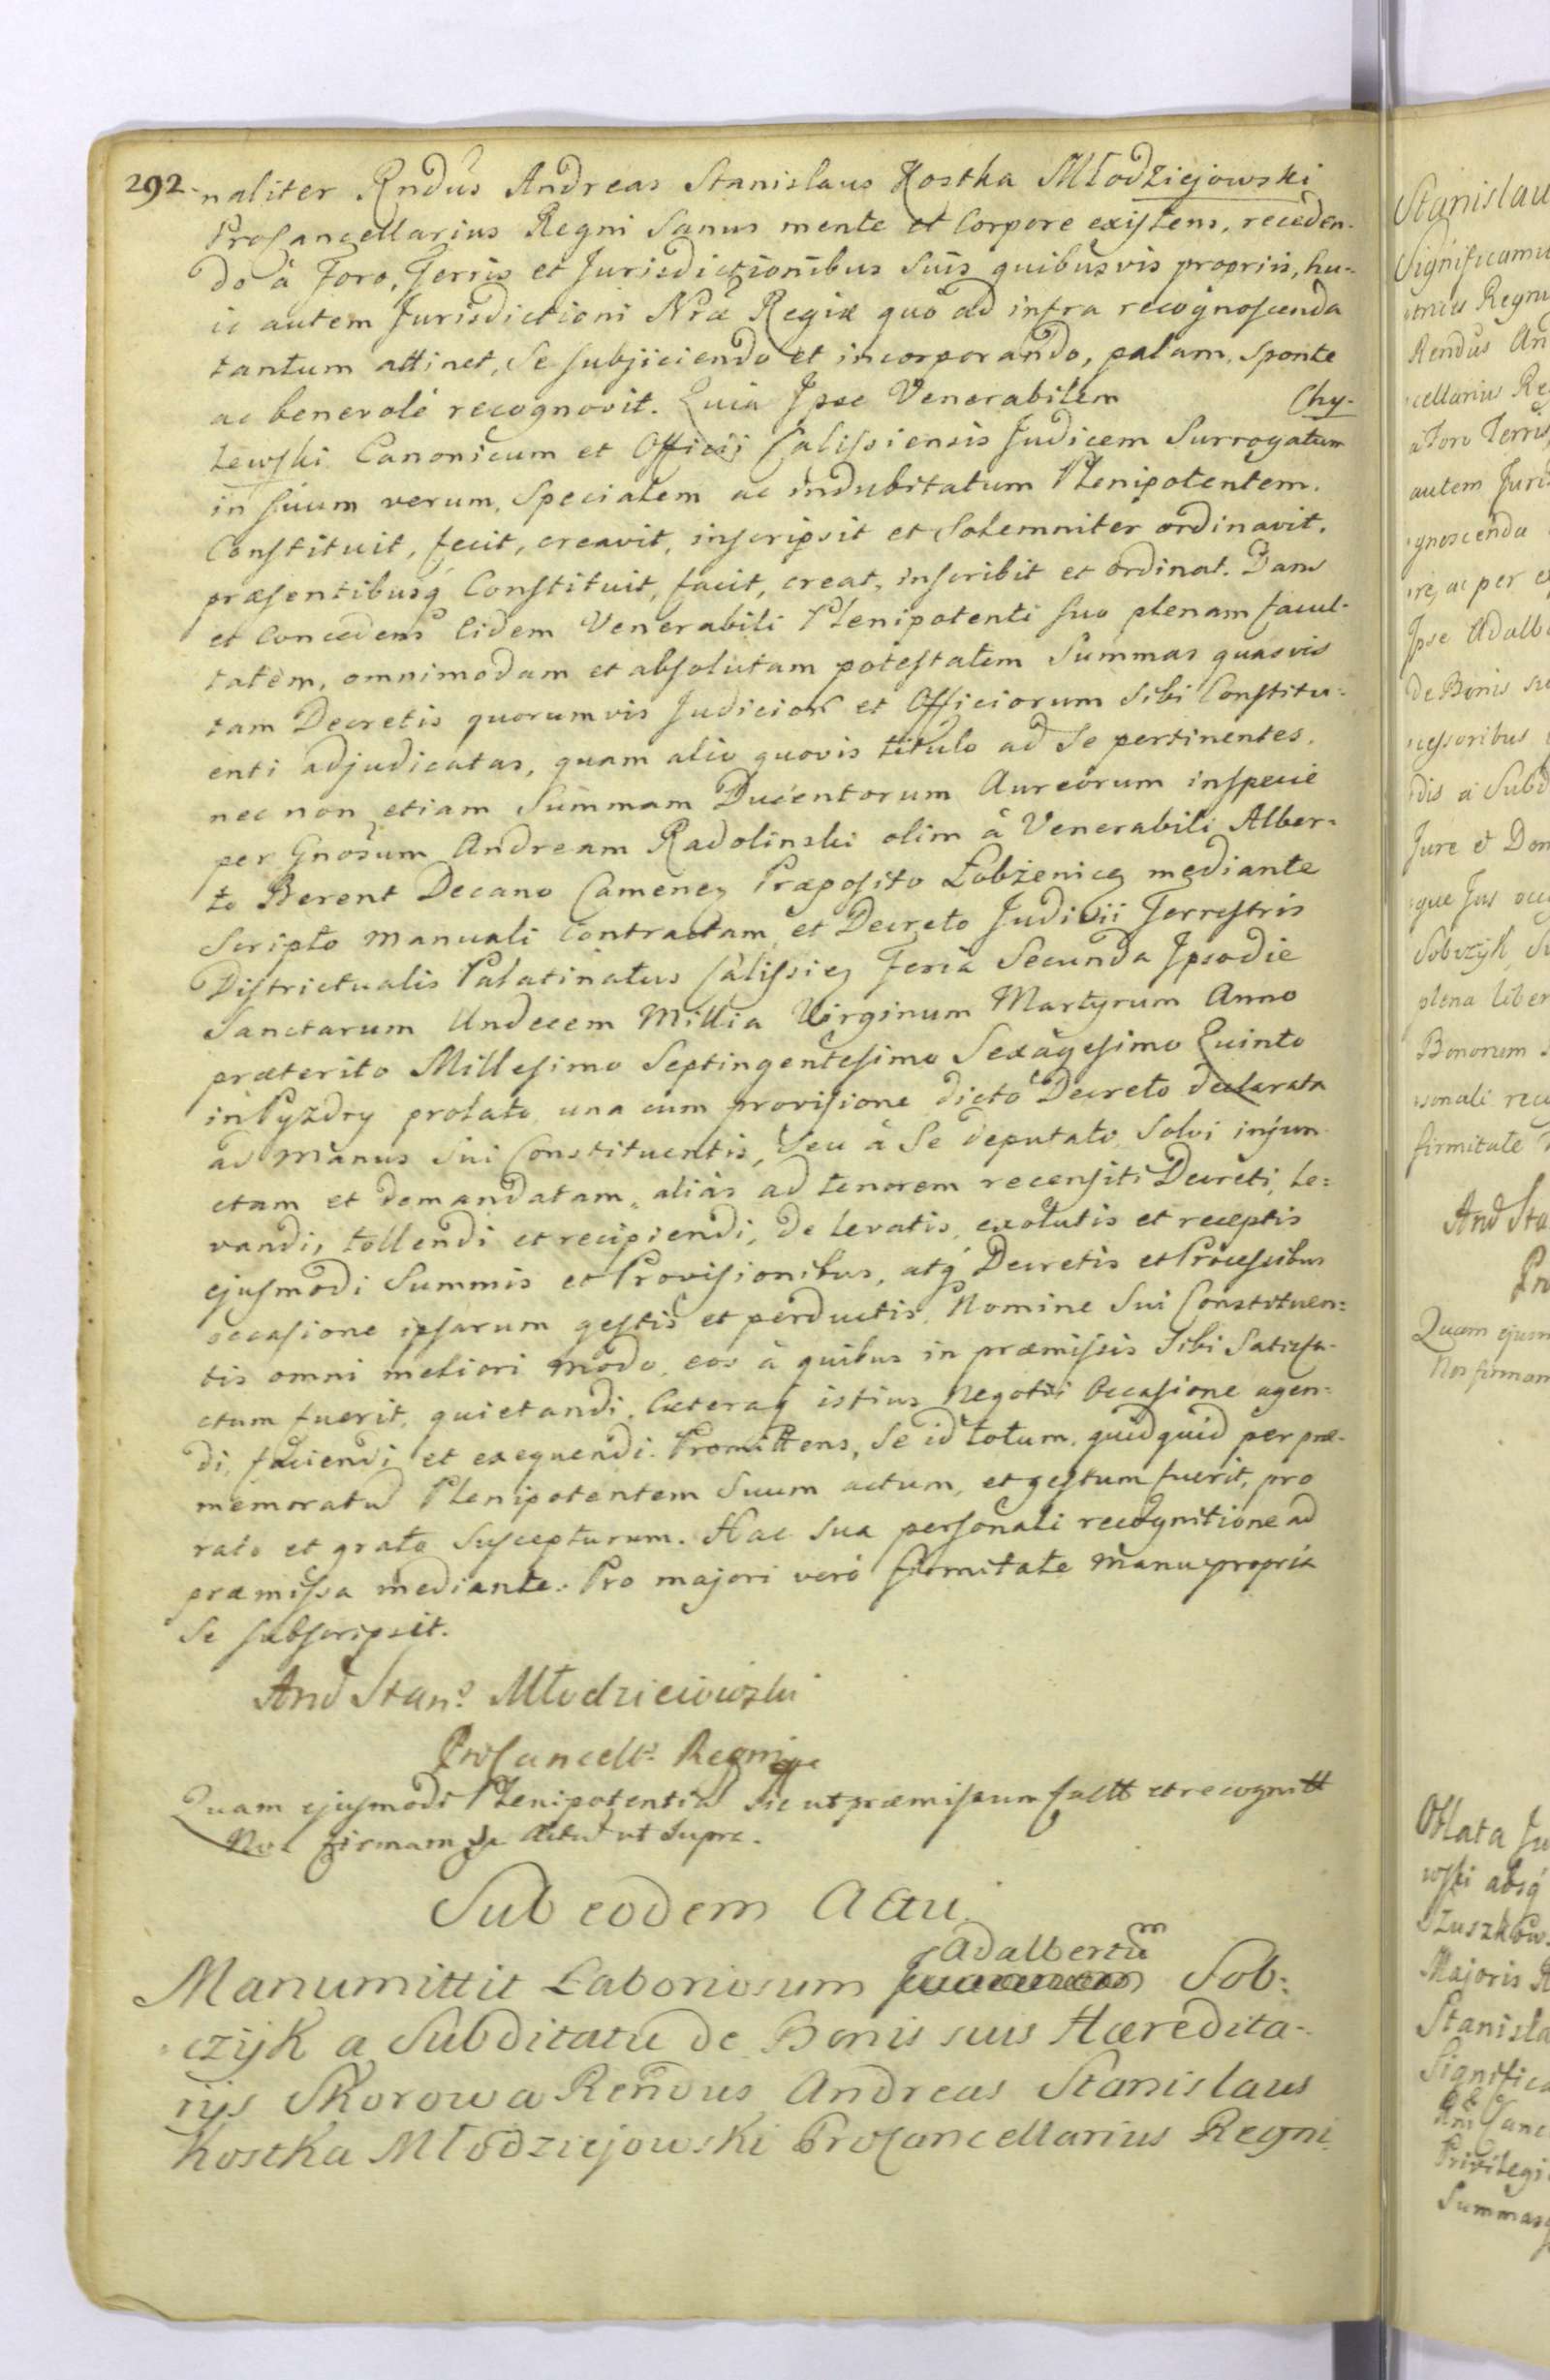 292
naliter Rndus Andreas Stanislaus Kostka Młodziejowski
ProCancellarius Regni Sanus mente et Corpore existens, receden-
do à Foro, Terris et Jurisdictionibus suis quibusvis propriis, hu-
ic autem Jurisdictioni Nrae Regiae quo ad infra recognoscenda
tantum attinet, Se subjiciendo et incorporando, palam, sponte
ac benevolè recognovit. Quia Ipse Venerabilem Chy-
lewski Canonicum et Officij Calissiensis Judicem Surrogatum
in suum verum, Specialem ac indubitatum Plenipotentem.
Constituit, fecit, creavit, inscripsit et Solemniter ordinavit.
praesentibusq Constituit, facit, creat, inscribit et ordinat. Dans
et Concedens Eidem Venerabili Plenipotenti suo plenam facul-
tatem, omnimodam et absolutam potestatem Summas quasvis
tam Decretis quorumvis Judicior et Officiorum Sibi Constitu-
enti adjudicatas, quam alio quovis titulo ad Se pertinentes.
nec non etiam Summam Ducentorum Aureorum inspecie
per Gnosum Andream Radolinski olim à Venerabili Alber-
to Berent Decano Camenen Praeposito Łobżenicen mediante
Scripto manuali Contractam et Decreto Judicii Terrestris
Districtualis Palatinatus Calissien Feria Secunda Ipsodie
Sanctarum Undecem Millia Virginum Martyrum Anno
praeterito Millesimo Septingentesimo Sexagesimo Quinto
in Pyzdry prolato una cum provisione dicto Decreto declarata
ad manus Sui Constituentis, Seu à Se deputati Solvi injun-
ctam et demandatam, alias ad tenorem recensiti Decreti, le-
vandi, tollendi et recipiendi, de levatis, exolutis et receptis
ejusmodi Summis et Provisionibus, atq Decretis et Processibus
occasione ipsarum gestis et perductis. Nomine Sui Constituen-
tis omni meliori modo, eos à quibus in praemissis Sibi Satisfa-
ctum fuerit, quietandi, Caeteraq istius negotii Occasione agen-
di, faciendi et exequendi. Promittens, Se id totum, quidquid per prae-
memoratu Plenipotentem Suum actum, et gestum fuerit, pro
rato et grato Suscepturum. Hac Sua personali recognitione ad
praemissa mediante. Pro majori verò firmitate manu propria
Se subscripsit.
And Stans Młodzieiowski
ProCancells Regni
Quam ejusmodi Plenipotentia sic ut praemissum factt et recognitt
Nos firmam Actu ut Supra.
Sub eodem Actu.
Adalbertum
Manumittit Laboriosum Sob-
czyk a Subditatu de Bonis suis Haeredita-
rijs Skorowa Rendus Andreas Stanislaus
Kostka Młodziejowski ProCancellarius Regni
Stanislau
Significamu
Regni
Rendus An
cellarius Re
a Foro Terris
autem Juris
gnoscenda
re, ac per e
Ipse Adalb
de Bonis su
cessoribus
dis a Subd
Jure et Dom
que Jus occ
Sobczyk Su
plena liber
Bonorum
sonali reco
firmitate
And Sta
Pro
Quam ejusm
Nos firmam
Oblata Ju
wski absq
Szuszkow
Majoris
Stanisla
Significa
Canc
Privilegi
Summas